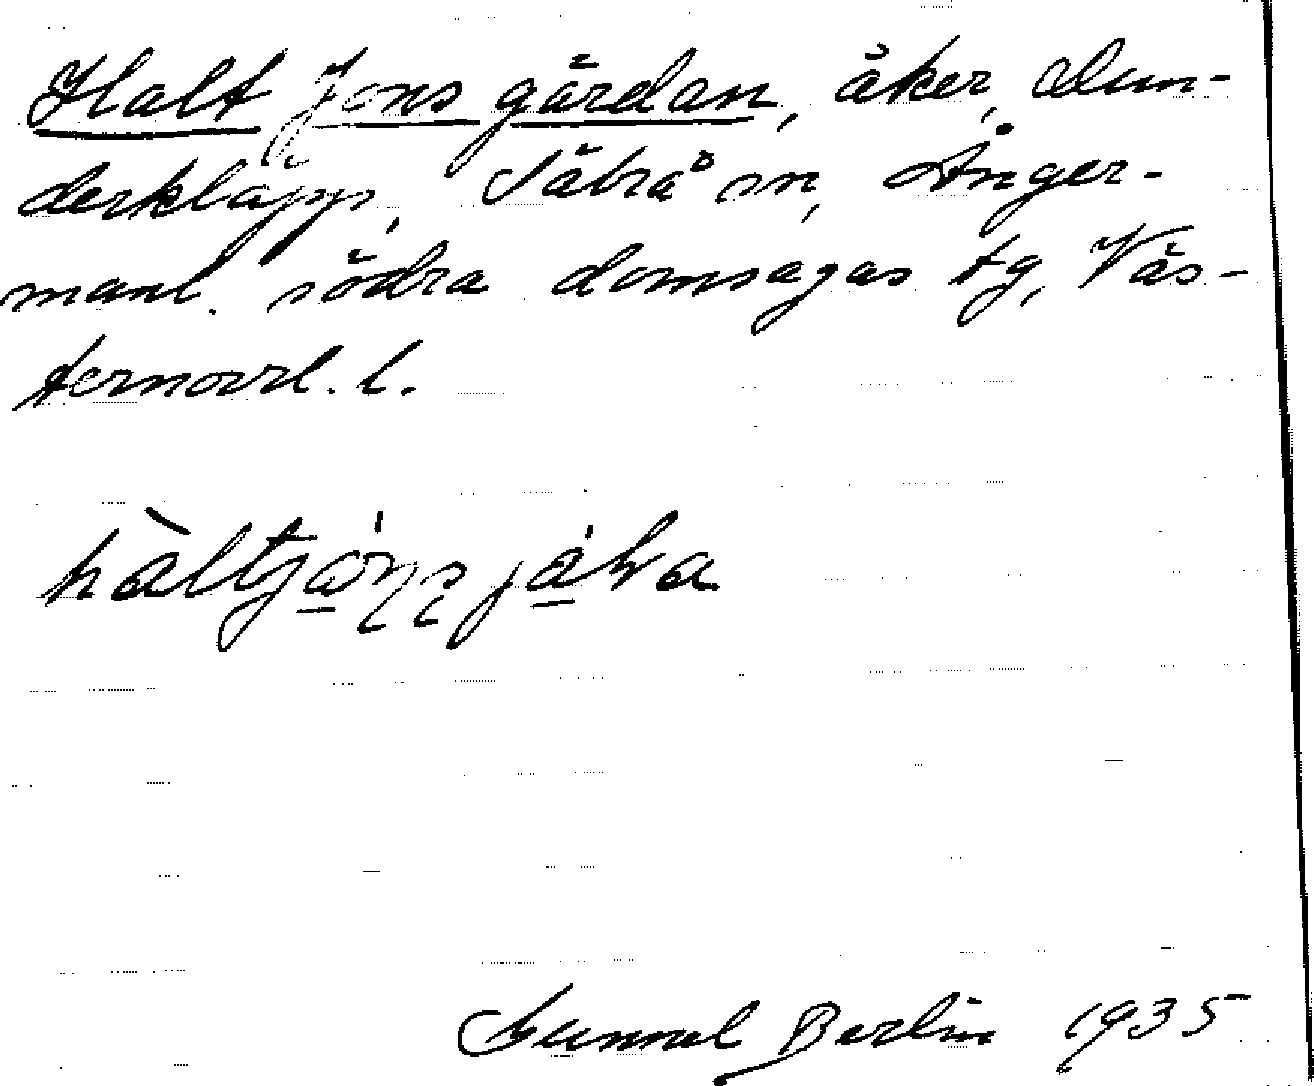 Halt Jons gärdan, åker, Dun-
derklapp, Säbrå sn, Ånger-
manl. södra domsagas tg, Väs-
ternorrl. l.
Gunnel Berlin 1935